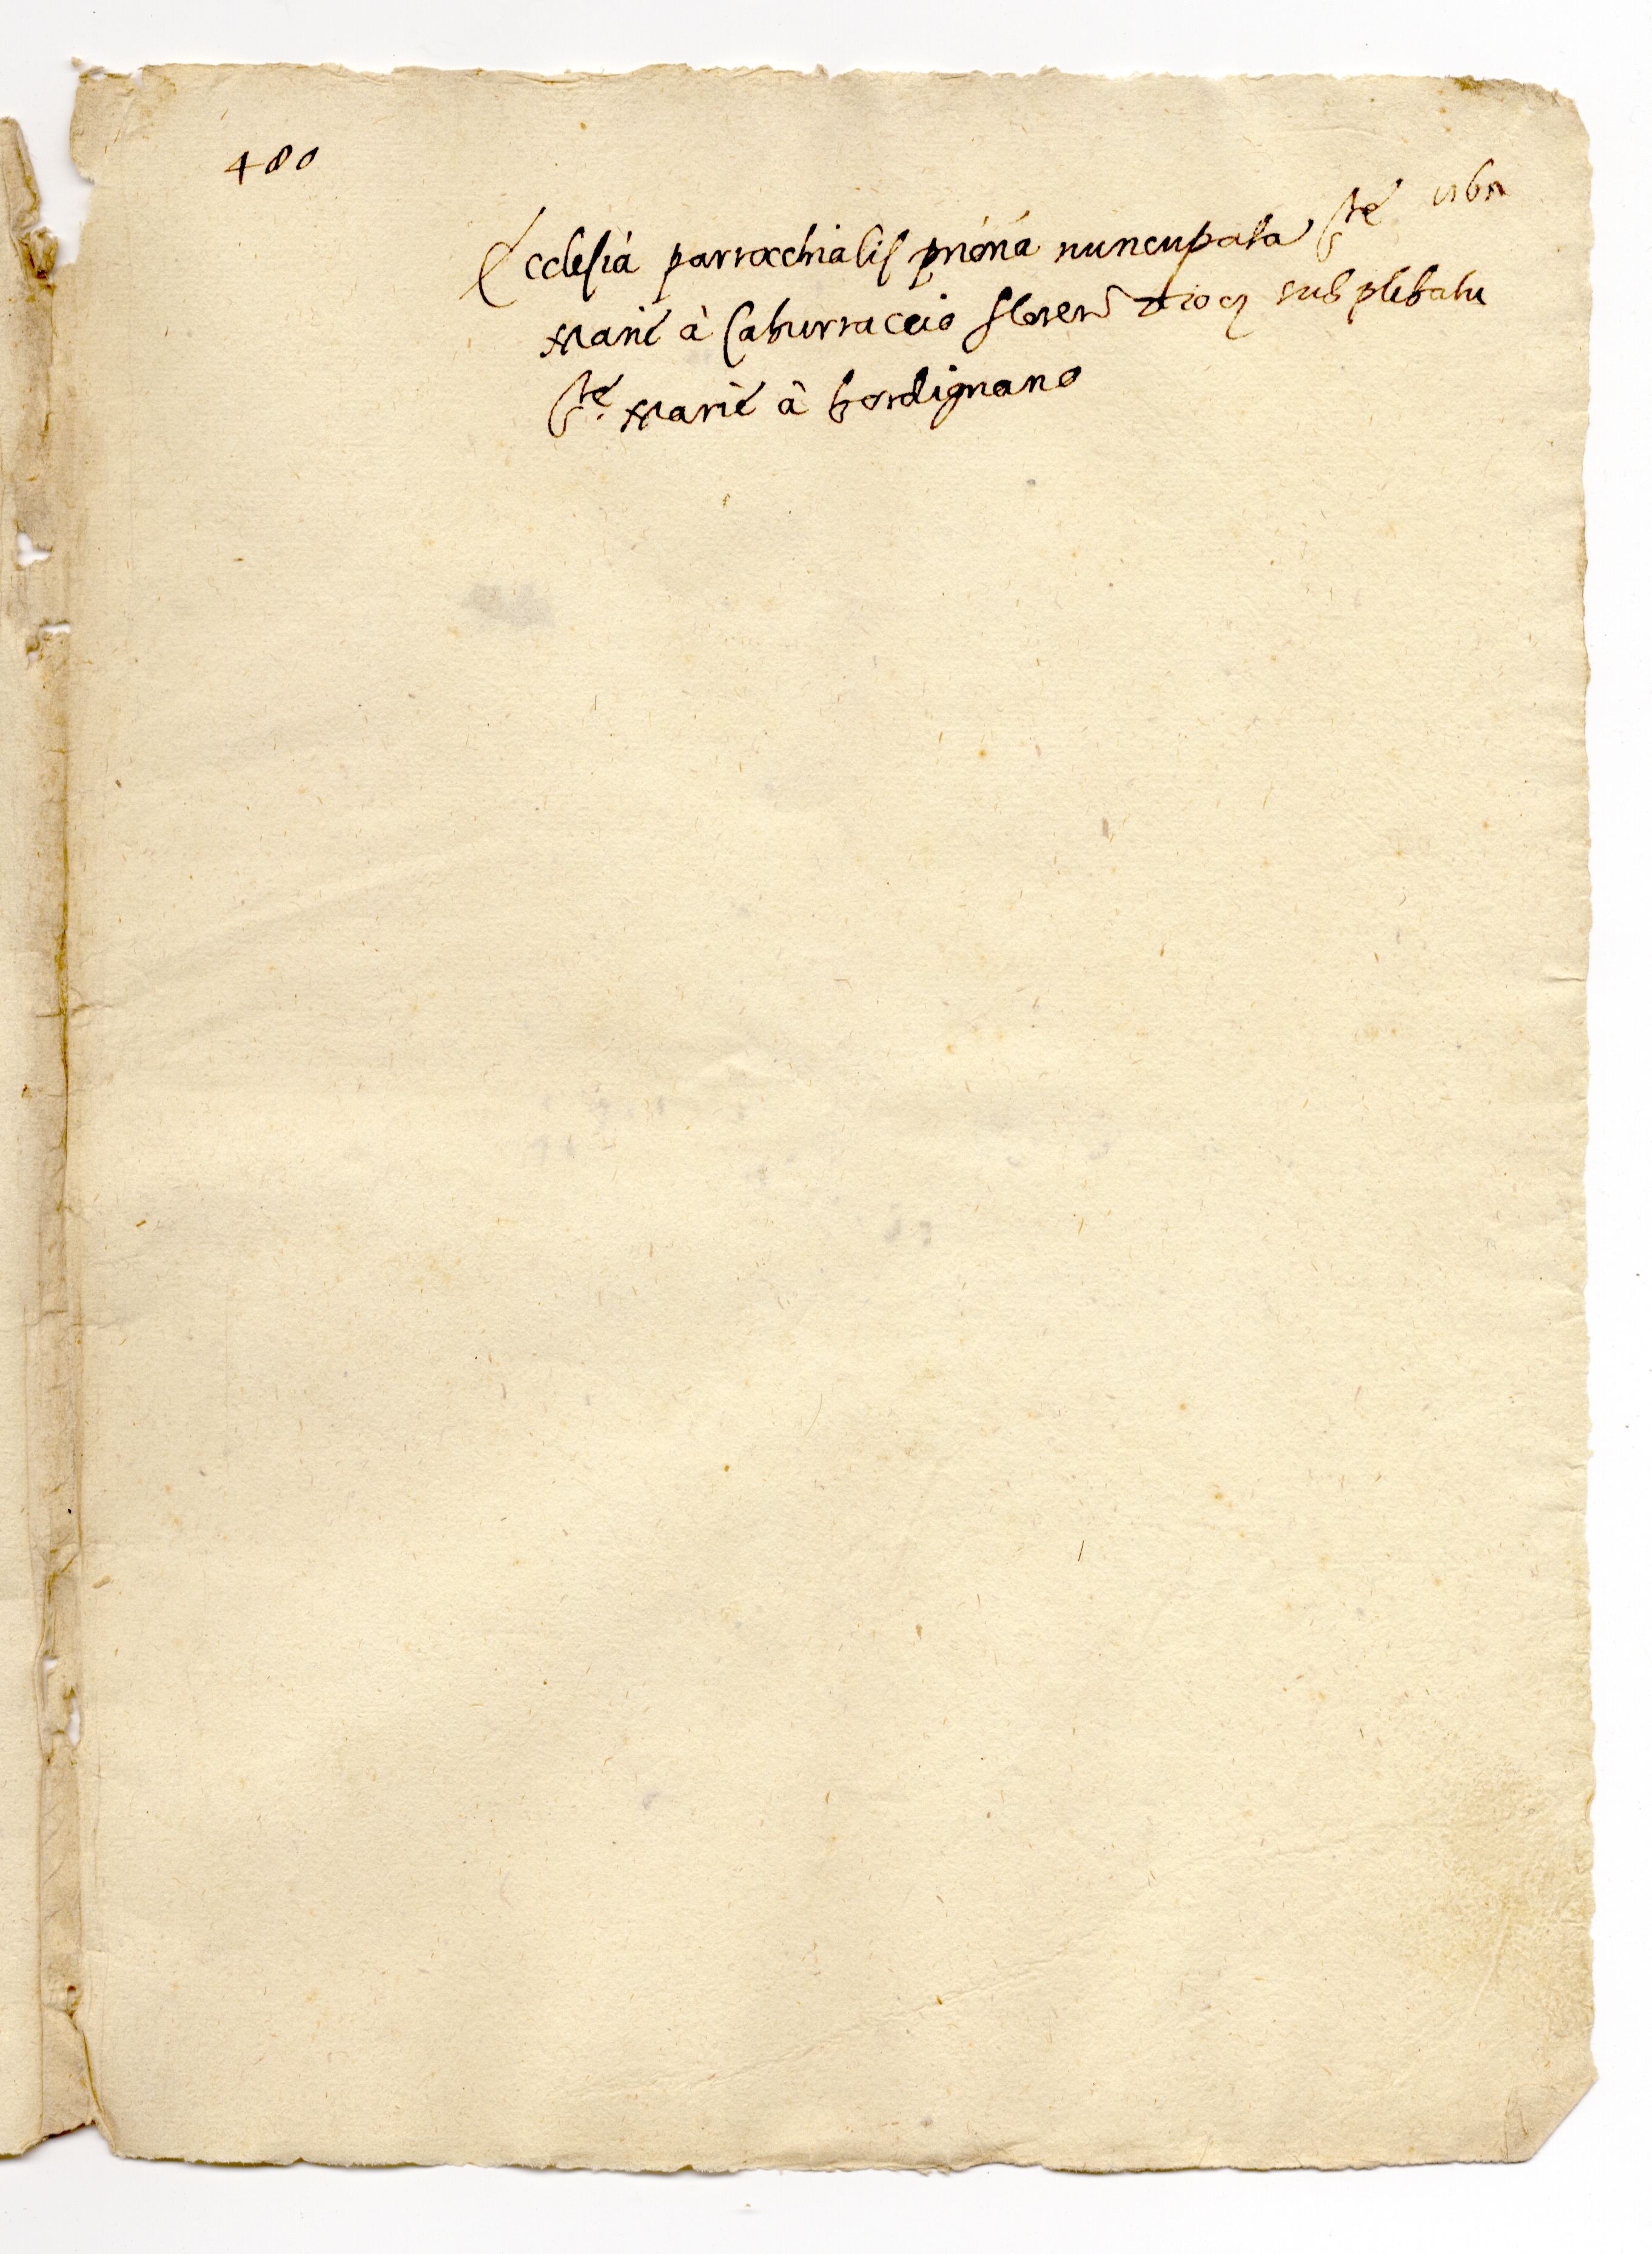 480
Ecclesia parrochialis prioria nuncupata Ste
Marie à Caburraccio floren dioc sub plebatu
Ste. Marie à bordignano